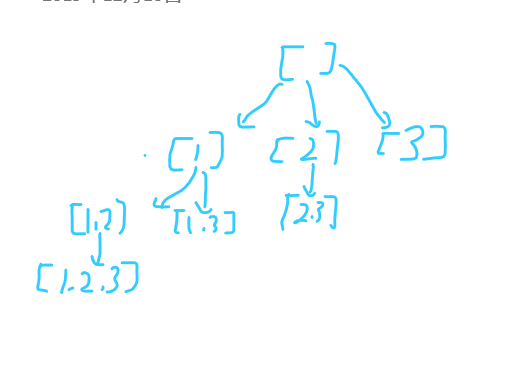 [ ]
[1] [2] [3]
[1,2] [1.3] [2.3]
[1.2.3]